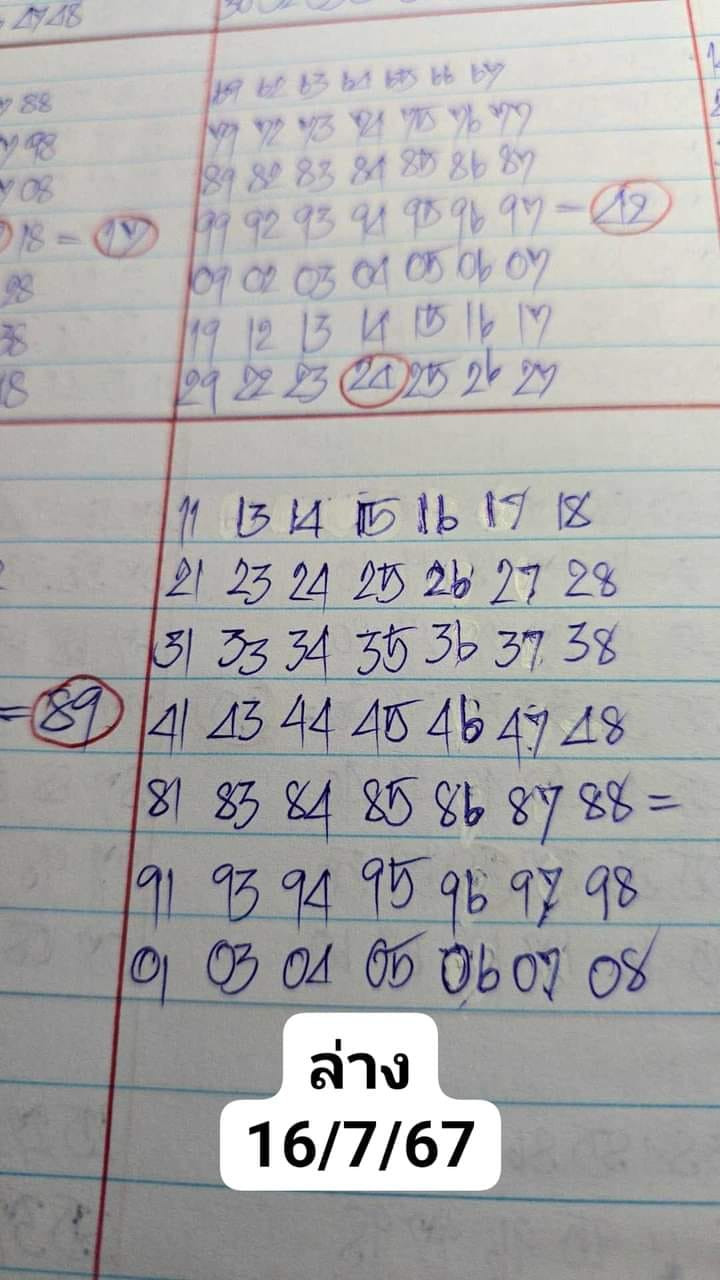 88
98
08
18 = 17
28
38
18
69 62 63 64 65 66 67
79 72 73 74 75 76 77
89 82 83 84 85 86 87
99 92 93 94 95 96 97 = 42
09 02 03 04 05 06 07
19 12 13 14 15 16 17
29 22 23 24 25 26 27
11 13 14 15 16 17 18
21 23 24 25 26 27 28
31 33 34 35 36 37 38
= 89 41 43 44 45 46 47 48
81 83 84 85 86 87 88 =
91 93 94 95 96 97 98
01 03 04 05 06 07 08
ล่าง
16/7/67